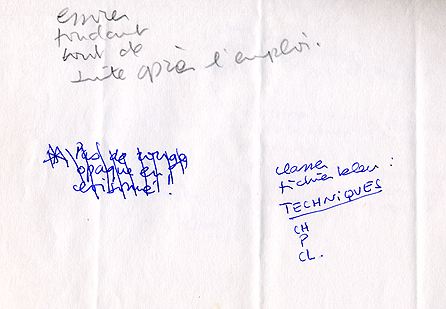 essuyer
fondant
tout de
suite après l'emploi.
Pas de rouge
opaque en
classer
fichier bleu :
TECHNIQUES
CH
P
CL.